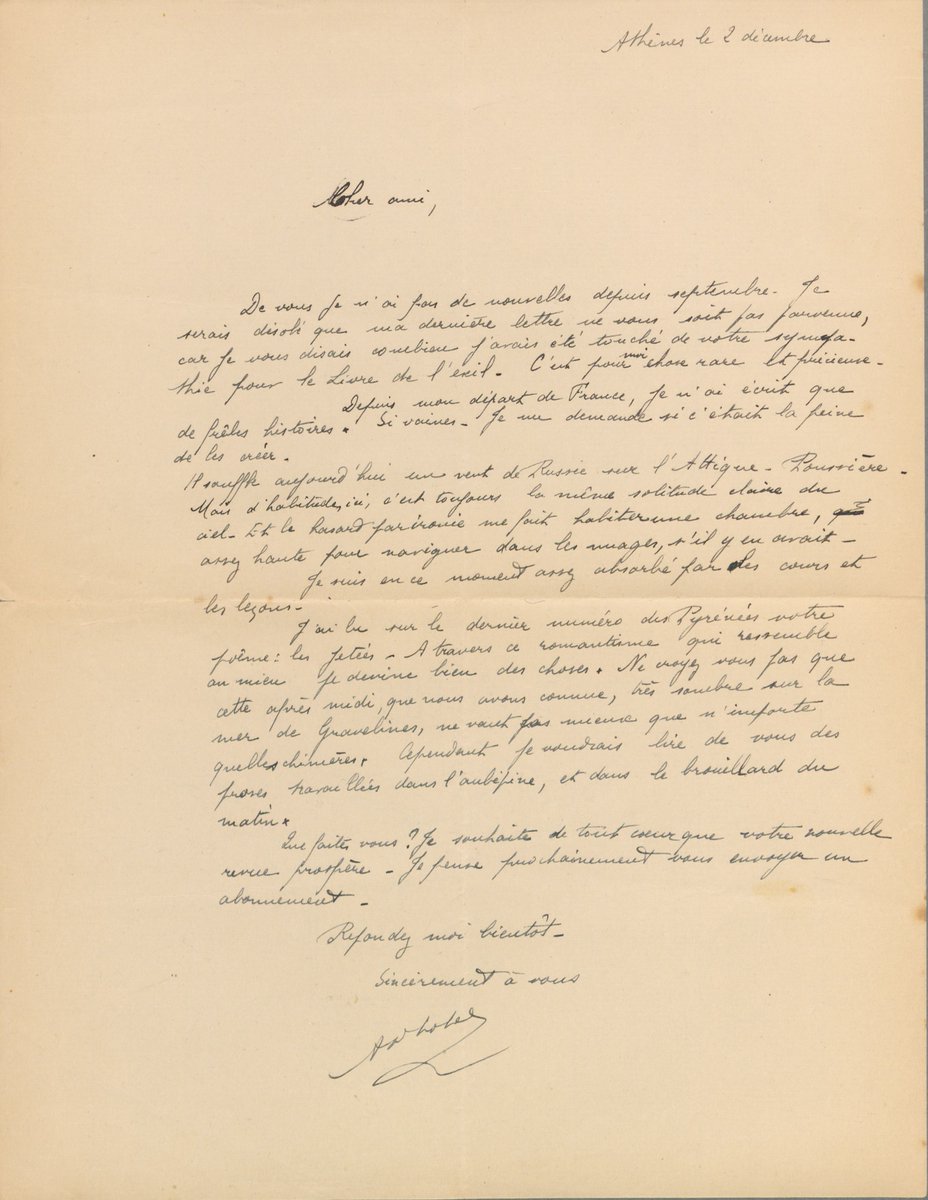 Athènes le 2 décembre
Cher ami,
De vous je n'ai pas de nouvelles depuis septembre - Je
serais désolé que ma dernière lettre ne vous soit pas parvenue,
car je vous disais combien j'avais été touché de votre sympa-
thie pour le Livre de l'exil - C'est pour moi chose rare et précieuse -
Depuis mon départ de France, je n'ai écrit que
de frêles histoires. Si vaines - Je me demande si c'était la peine
de les créer -
Il souffle aujourd'hui un vent de Russie sur l'Attique - Poussière -
Mais d'habitude, ici, c'est toujours la même solitude claire du
ciel - Et le hasard par ironie me fait habiter une chambre,
assez haute pour naviguer dans les nuages, s'il y en avait -
Je suis en ce moment assez absorbé par les cours et
les leçons -
J'ai lu sur le dernier numéro des Pyrénées votre
poème : les Jetées - A travers ce romantisme qui ressemble
au mien je devine bien des choses. Ne croyez vous pas que
cette après midi, que nous avons connue, très sombre sur la
mer de Gravelines, ne vaut pas mieux que n'importe
quelles chimères. Cependant je voudrais lire de vous des
proses travaillées dans l'aubépine, et dans le brouillard du
matin.
Que faite vous ? Je souhaite de tout coeur que votre nouvelle
revue prospère - Je pense prochainement vous envoyer un
abonnement -
Repondez moi bientôt -
Sincèrement à vous